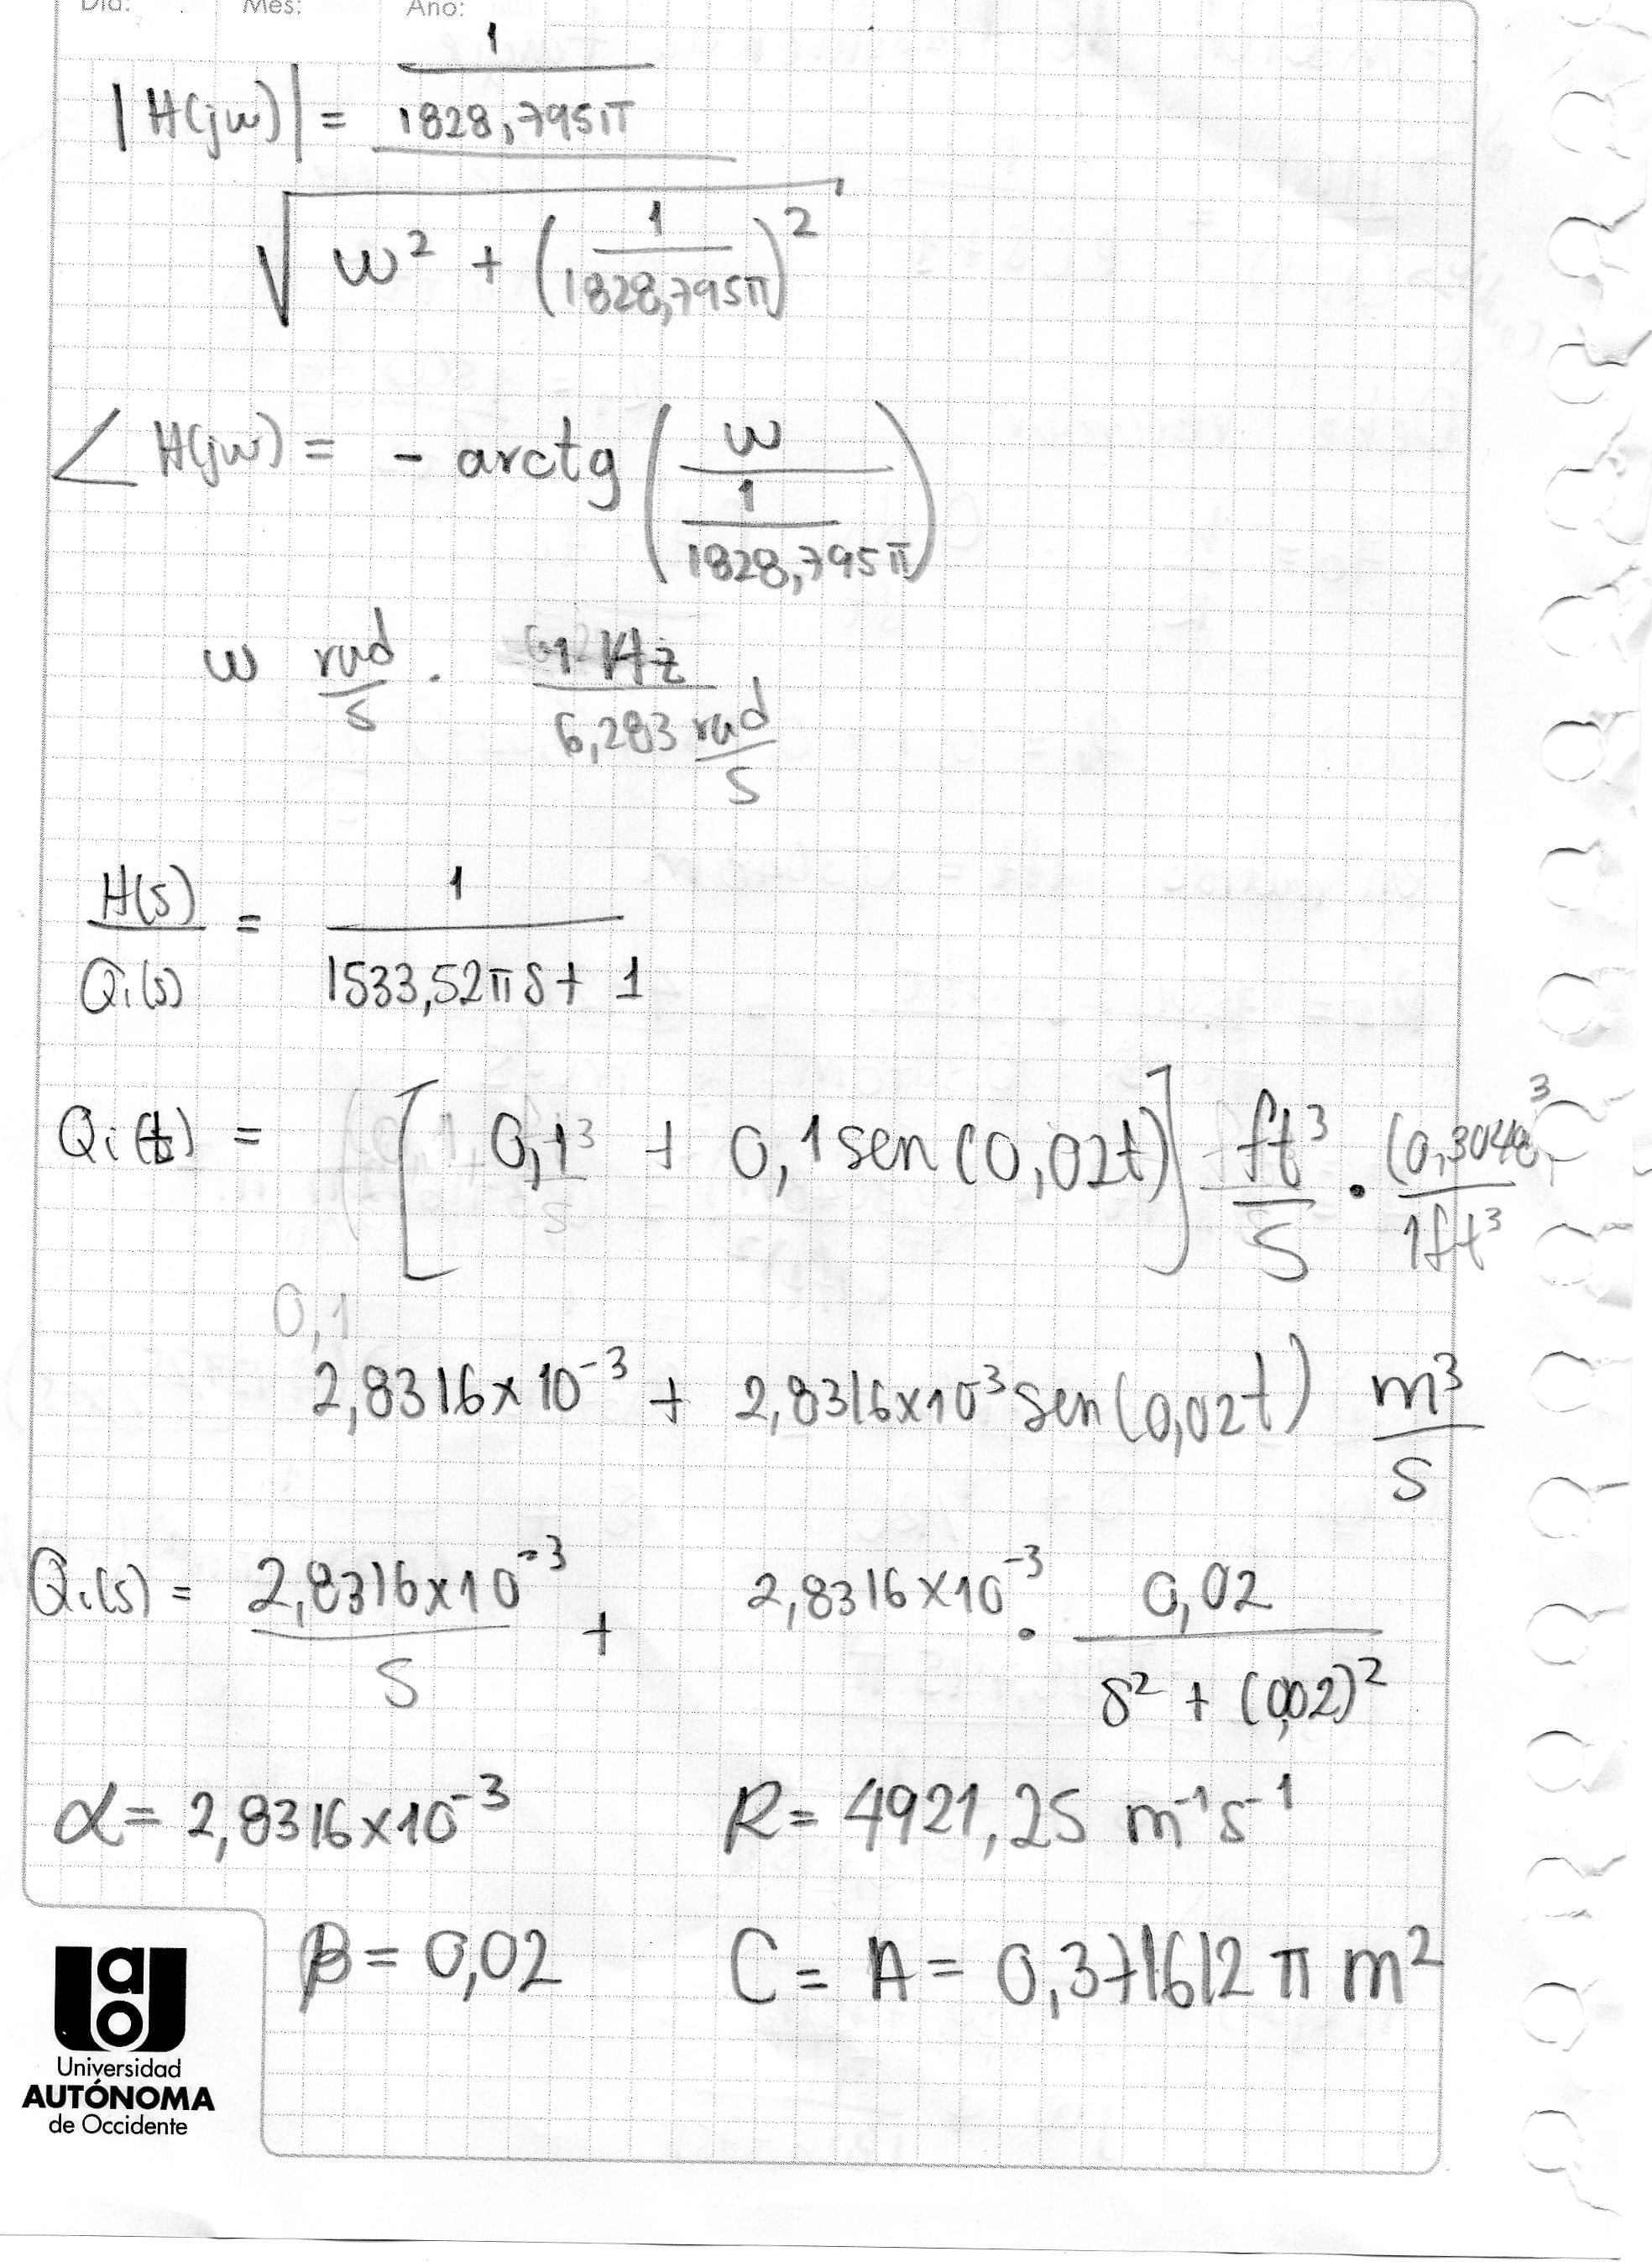 Día: Mes: Año:
|H(jw)| = 1 / 1828,795π
√ w² + (1 / 1828,795π)²
∠ H(jw) = - arctg (w / 1 / 1828,795π)
w rad/s · 1 Hz / 6,283 rad/s
H(s) / Qi(s) = 1 / 1533,52πs + 1
Qi(t) = [0,1 + 0,1 sen(0,02t)] ft³/s · (0,3048)³ / 1ft³
0,1
2,8316×10⁻³ + 2,8316×10⁻³ sen(0,02t) m³/s
Qi(s) = 2,8316×10⁻³ / s + 2,8316×10⁻³ · 0,02 / s² + (0,02)²
α = 2,8316×10⁻³ R = 4921,25 m⁻¹s⁻¹
β = 0,02 C = A = 0,371612 π m²
uao
Universidad
AUTÓNOMA
de Occidente